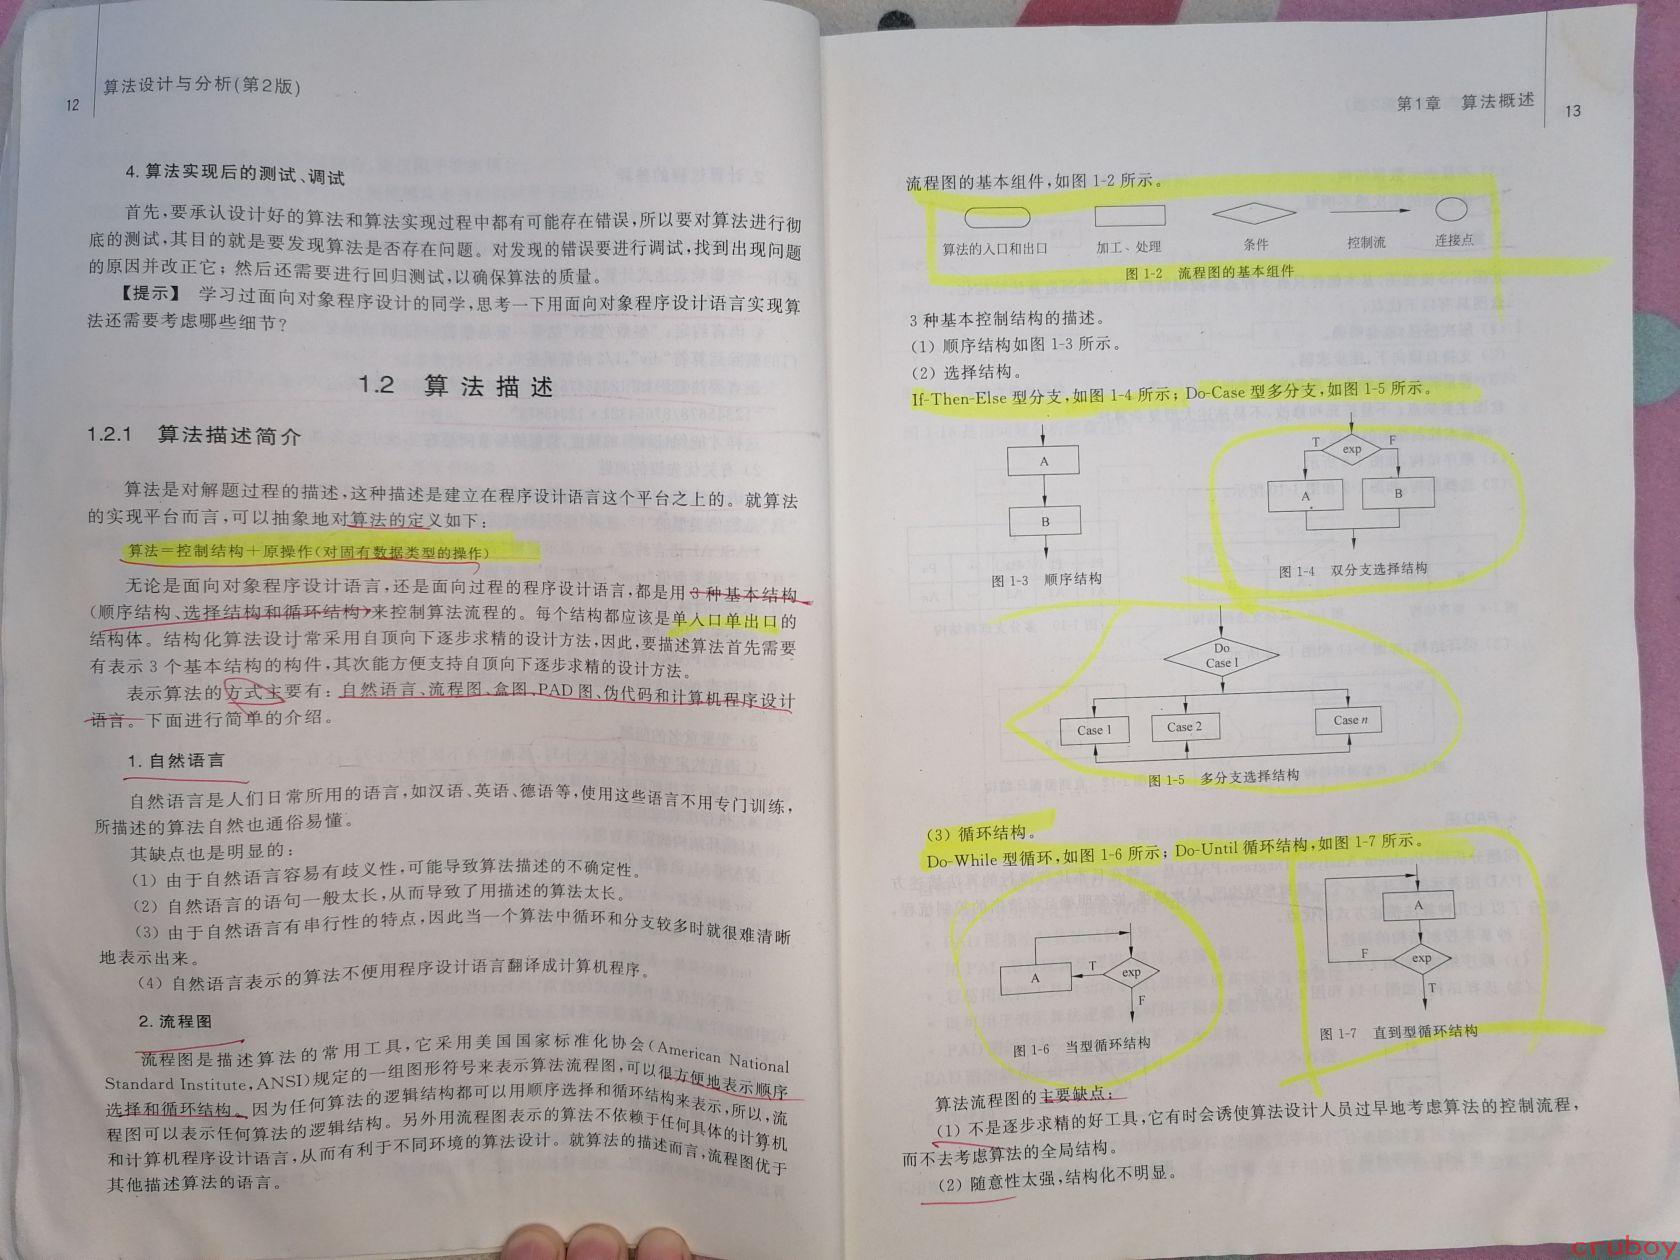 12
算法设计与分析(第2版)
4. 算法实现后的测试、调试
首先,要承认设计好的算法和算法实现过程中都有可能存在错误,所以要对算法进行彻
底的测试,其目的就是要发现算法是否存在问题。对发现的错误要进行调试,找到出现问题
的原因并改正它；然后还需要进行回归测试,以确保算法的质量。
【提示】 学习过面向对象程序设计的同学,思考一下用面向对象程序设计语言实现算
法还需要考虑哪些细节？
1.2 算法描述
1.2.1 算法描述简介
算法是对解题过程的描述,这种描述是建立在程序设计语言这个平台之上的。就算法
的实现平台而言,可以抽象地对算法的定义如下：
算法＝控制结构＋原操作(对固有数据类型的操作)
无论是面向对象程序设计语言,还是面向过程的程序设计语言,都是用3种基本结构
(顺序结构、选择结构和循环结构)来控制算法流程的。每个结构都应该是单入口单出口的
结构体。结构化算法设计常采用自顶向下逐步求精的设计方法,因此,要描述算法首先需要
有表示3个基本结构的构件,其次能方便支持自顶向下逐步求精的设计方法。
表示算法的方式主要有：自然语言、流程图、盒图、PAD图、伪代码和计算机程序设计
语言。下面进行简单的介绍。
1. 自然语言
自然语言是人们日常所用的语言,如汉语、英语、德语等,使用这些语言不用专门训练,
所描述的算法自然也通俗易懂。
其缺点也是明显的：
(1) 由于自然语言容易有歧义性,可能导致算法描述的不确定性。
(2) 自然语言的语句一般太长,从而导致了用描述的算法太长。
(3) 由于自然语言有串行性的特点,因此当一个算法中循环和分支较多时就很难清晰
地表示出来。
(4) 自然语言表示的算法不便用程序设计语言翻译成计算机程序。
2. 流程图
流程图是描述算法的常用工具,它采用美国国家标准化协会(American National
Standard Institute,ANSI)规定的一组图形符号来表示算法流程图,可以很方便地表示顺序
选择和循环结构。因为任何算法的逻辑结构都可以用顺序选择和循环结构来表示,所以,流
程图可以表示任何算法的逻辑结构。另外用流程图表示的算法不依赖于任何具体的计算机
和计算机程序设计语言,从而有利于不同环境的算法设计。就算法的描述而言,流程图优于
其他描述算法的语言。
第1章 算法概述
13
流程图的基本组件,如图1-2所示。
算法的入口和出口 加工、处理 条件 控制流 连接点
图1-2 流程图的基本组件
3种基本控制结构的描述。
(1) 顺序结构如图1-3所示。
(2) 选择结构。
If-Then-Else型分支,如图1-4所示；Do-Case型多分支,如图1-5所示。
A
B
图1-3 顺序结构
T exp F
A B
图1-4 双分支选择结构
Do
Case I
Case 1 Case 2 Case n
图1-5 多分支选择结构
(3) 循环结构。
Do-While型循环,如图1-6所示；Do-Until循环结构,如图1-7所示。
A T exp
F
图1-6 当型循环结构
A
F exp
T
图1-7 直到型循环结构
算法流程图的主要缺点：
(1) 不是逐步求精的好工具,它有时会诱使算法设计人员过早地考虑算法的控制流程,
而不去考虑算法的全局结构。
(2) 随意性太强,结构化不明显。
cruboy